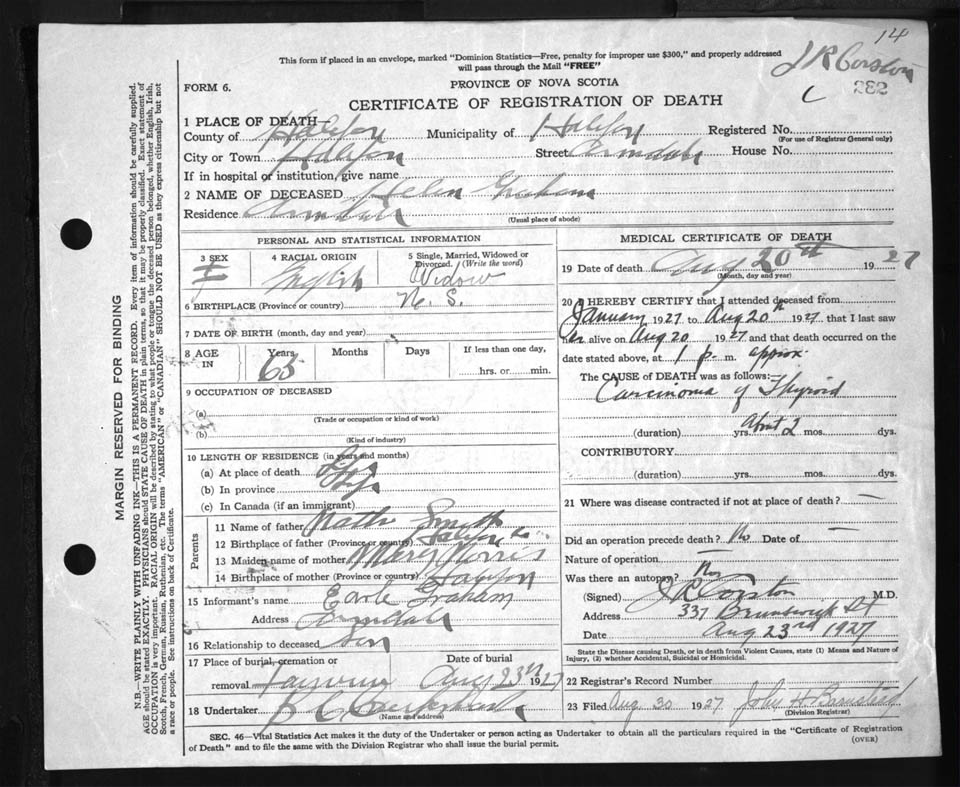 14
This form if placed in an envelope, marked "Dominion Statistics—Free, penalty for improper use $300," and properly addressed
will pass through the Mail "FREE"
J R Corston
282
PROVINCE OF NOVA SCOTIA
FORM 6.
CERTIFICATE OF REGISTRATION OF DEATH
1 PLACE OF DEATH—
County of Halifax Municipality of Halifax Registered No.
(For use of Registrar General only)
City or Town Halifax Street Armdale House No.
If in hospital or institution, give name
2 NAME OF DECEASED Helen Graham
Residence Armdale
(Usual place of abode)
PERSONAL AND STATISTICAL INFORMATION
3 SEX 4 RACIAL ORIGIN 5 Single, Married, Widowed or Divorced. (Write the word)
F English Widow
6 BIRTHPLACE (Province or country) N. S.
7 DATE OF BIRTH (month, day and year)
8 AGE IN Years Months Days If less than one day,
65 hrs. or min.
9 OCCUPATION OF DECEASED
(a)
(Trade or occupation or kind of work)
(b)
(Kind of industry)
10 LENGTH OF RESIDENCE (in years and months)
(a) At place of death Life
(b) In province
(c) In Canada (if an immigrant)
Parents
11 Name of father Smyth
12 Birthplace of father (Province or country) Halifax
13 Maiden name of mother Mary Norris
14 Birthplace of mother (Province or country) Halifax
15 Informant's name Earle Graham
Address Armdale
16 Relationship to deceased Son
17 Place of burial, cremation or Date of burial
removal Fairview Aug 23rd 1927
18 Undertaker
(Name and address)
MEDICAL CERTIFICATE OF DEATH
19 Date of death Aug 20th 1927
(Month, day and year)
20 I HEREBY CERTIFY that I attended deceased from
January 1927 to Aug 20th 1927 that I last saw
her alive on Aug 20 1927 and that death occurred on the
date stated above, at 1 p. m. approx.
The CAUSE OF DEATH was as follows:—
Carcinoma of Thyroid
(duration) yrs. About 2 mos. dys.
CONTRIBUTORY
(duration) yrs. mos. dys.
21 Where was disease contracted if not at place of death? —
Did an operation precede death? No Date of —
Nature of operation —
Was there an autopsy? No
(Signed) J R Corston M.D.
Address 337 Brunswick St
Date Aug 23rd 1927
State the Disease causing Death, or in death from Violent Causes, state (1) Means and Nature of
Injury, (2) whether Accidental, Suicidal or Homicidal.
22 Registrar's Record Number
23 Filed Aug 30 1927 John H.
(Division Registrar)
SEC. 46—Vital Statistics Act makes it the duty of the Undertaker or person acting as Undertaker to obtain all the particulars required in the "Certificate of Registration
of Death" and to file the same with the Division Registrar who shall issue the burial permit.
(OVER)
MARGIN RESERVED FOR BINDING
N.B.—WRITE PLAINLY WITH UNFADING INK—THIS IS A PERMANENT RECORD. Every item of information should be carefully supplied.
AGE should be stated EXACTLY. PHYSICIANS should STATE CAUSE OF DEATH in plain terms, so that it may be properly classified. Exact statement of
OCCUPATION is very important. RACIAL ORIGIN will be described by stating to what people or tongue the deceased person belonged, whether English, Irish,
Scotch, French, German, Russian, Ruthenian, etc. The terms "AMERICAN" or "CANADIAN" SHOULD NOT BE USED as they express citizenship but not
a race or people. See instructions on back of Certificate.